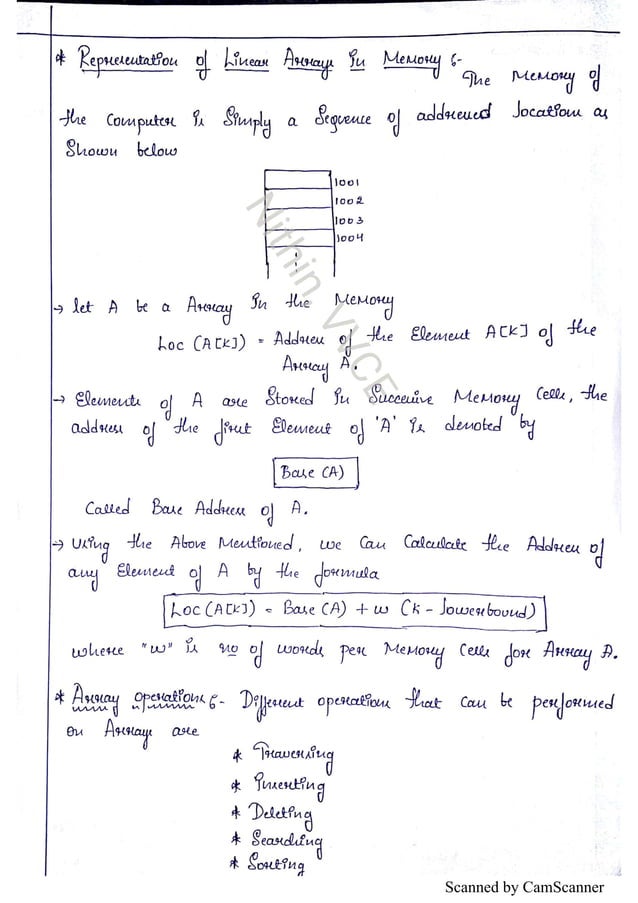 * Representation of Linear Arrays in Memory :-
The Memory of
the computer is Simply a Sequence of addressed location as
Shown below
1001
1002
1003
1004
→ let A be a Array in the Memory
Loc (A[K]) = Address of the Element A[K] of the
Array A.
→ Elements of A are Stored in Successive Memory Cells, the
address of the first Element of 'A' is denoted by
Base (A)
Called Base Address of A.
→ Using the Above Mentioned, we Can Calculate the Address of
any Element of A by the formula
Loc (A[K]) = Base (A) + w (K - lowerbound)
where "w" is no of words per Memory Cells for Array A.
* Array operations :- Different operations that can be performed
on Arrays are
* Traversing
* Inserting
* Deleting
* Searching
* Sorting
Nithin, VVCE
Scanned by CamScanner